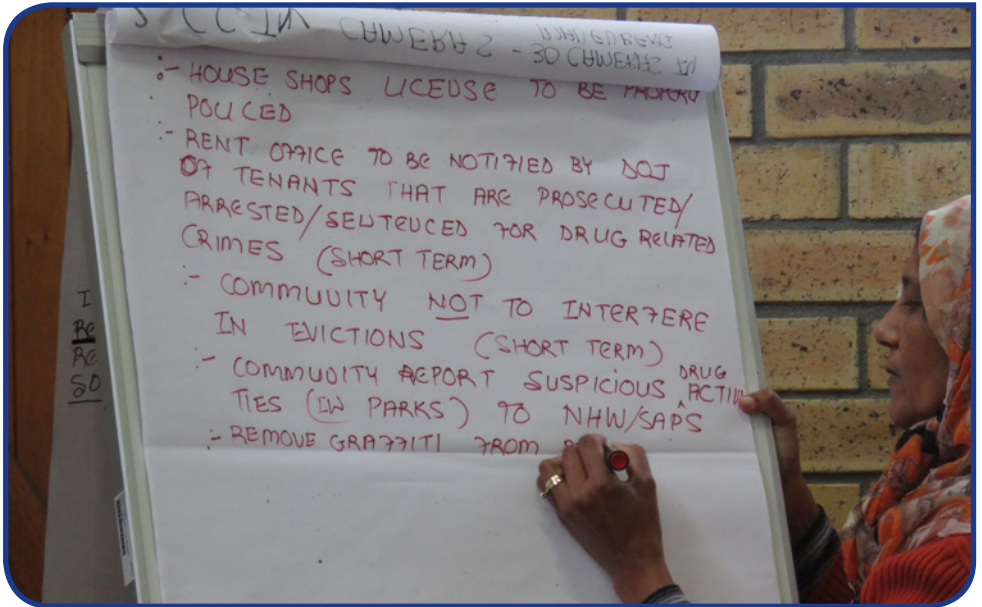 CCTV CAMERAS MANENBERG
- 30 CAMERAS
:- HOUSE SHOPS LICENSE TO BE PROPERLY
POLICED
:- RENT OFFICE TO BE NOTIFIED BY DOJ
OF TENANTS THAT ARE PROSECUTED/
ARRESTED/SENTENCED FOR DRUG RELATED
CRIMES (SHORT TERM)
:- COMMUNITY NOT TO INTERFERE
IN EVICTIONS (SHORT TERM)
:- COMMUNITY REPORT SUSPICIOUS DRUG ACTIVI
TIES (IN PARKS) TO NHW/SAPS
:- REMOVE GRAFFITI FROM
I
BE
RE
SO